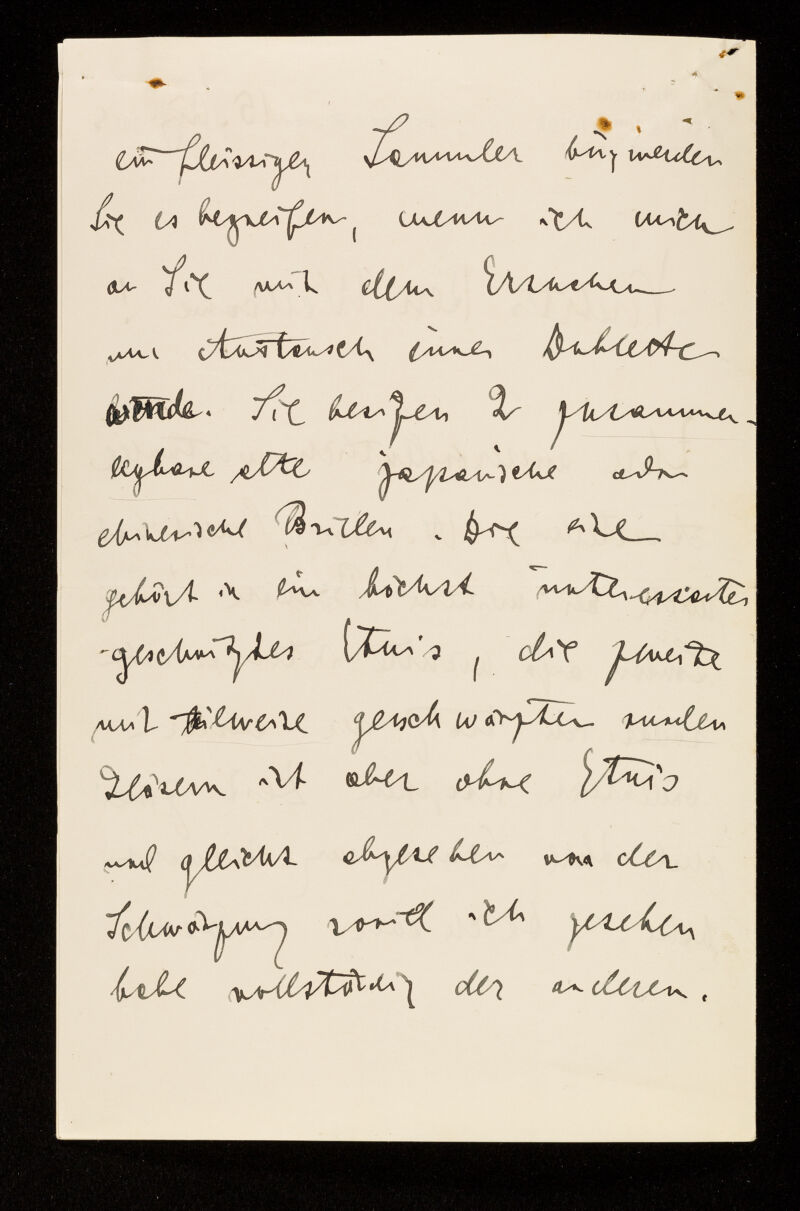 ein fleissiger Sammler bin, werden
Sie es begreifen, wenn ich mich
an Sie mit dem Ersuchen
um Austausch einer Dublette
wende. Sie besitzen 2 zusammen-
legbare alte japanische oder
chinesische Brillen. Die eine
gehört in ein höchst
geschnitztes Etuis, die zweite
mit teilweise geschwärzten runden
Gläsern ist aber ohne Etuis
und gleicht abgesehen von der
Schwärzung soviel ich gesehen
habe vollständig der anderen.